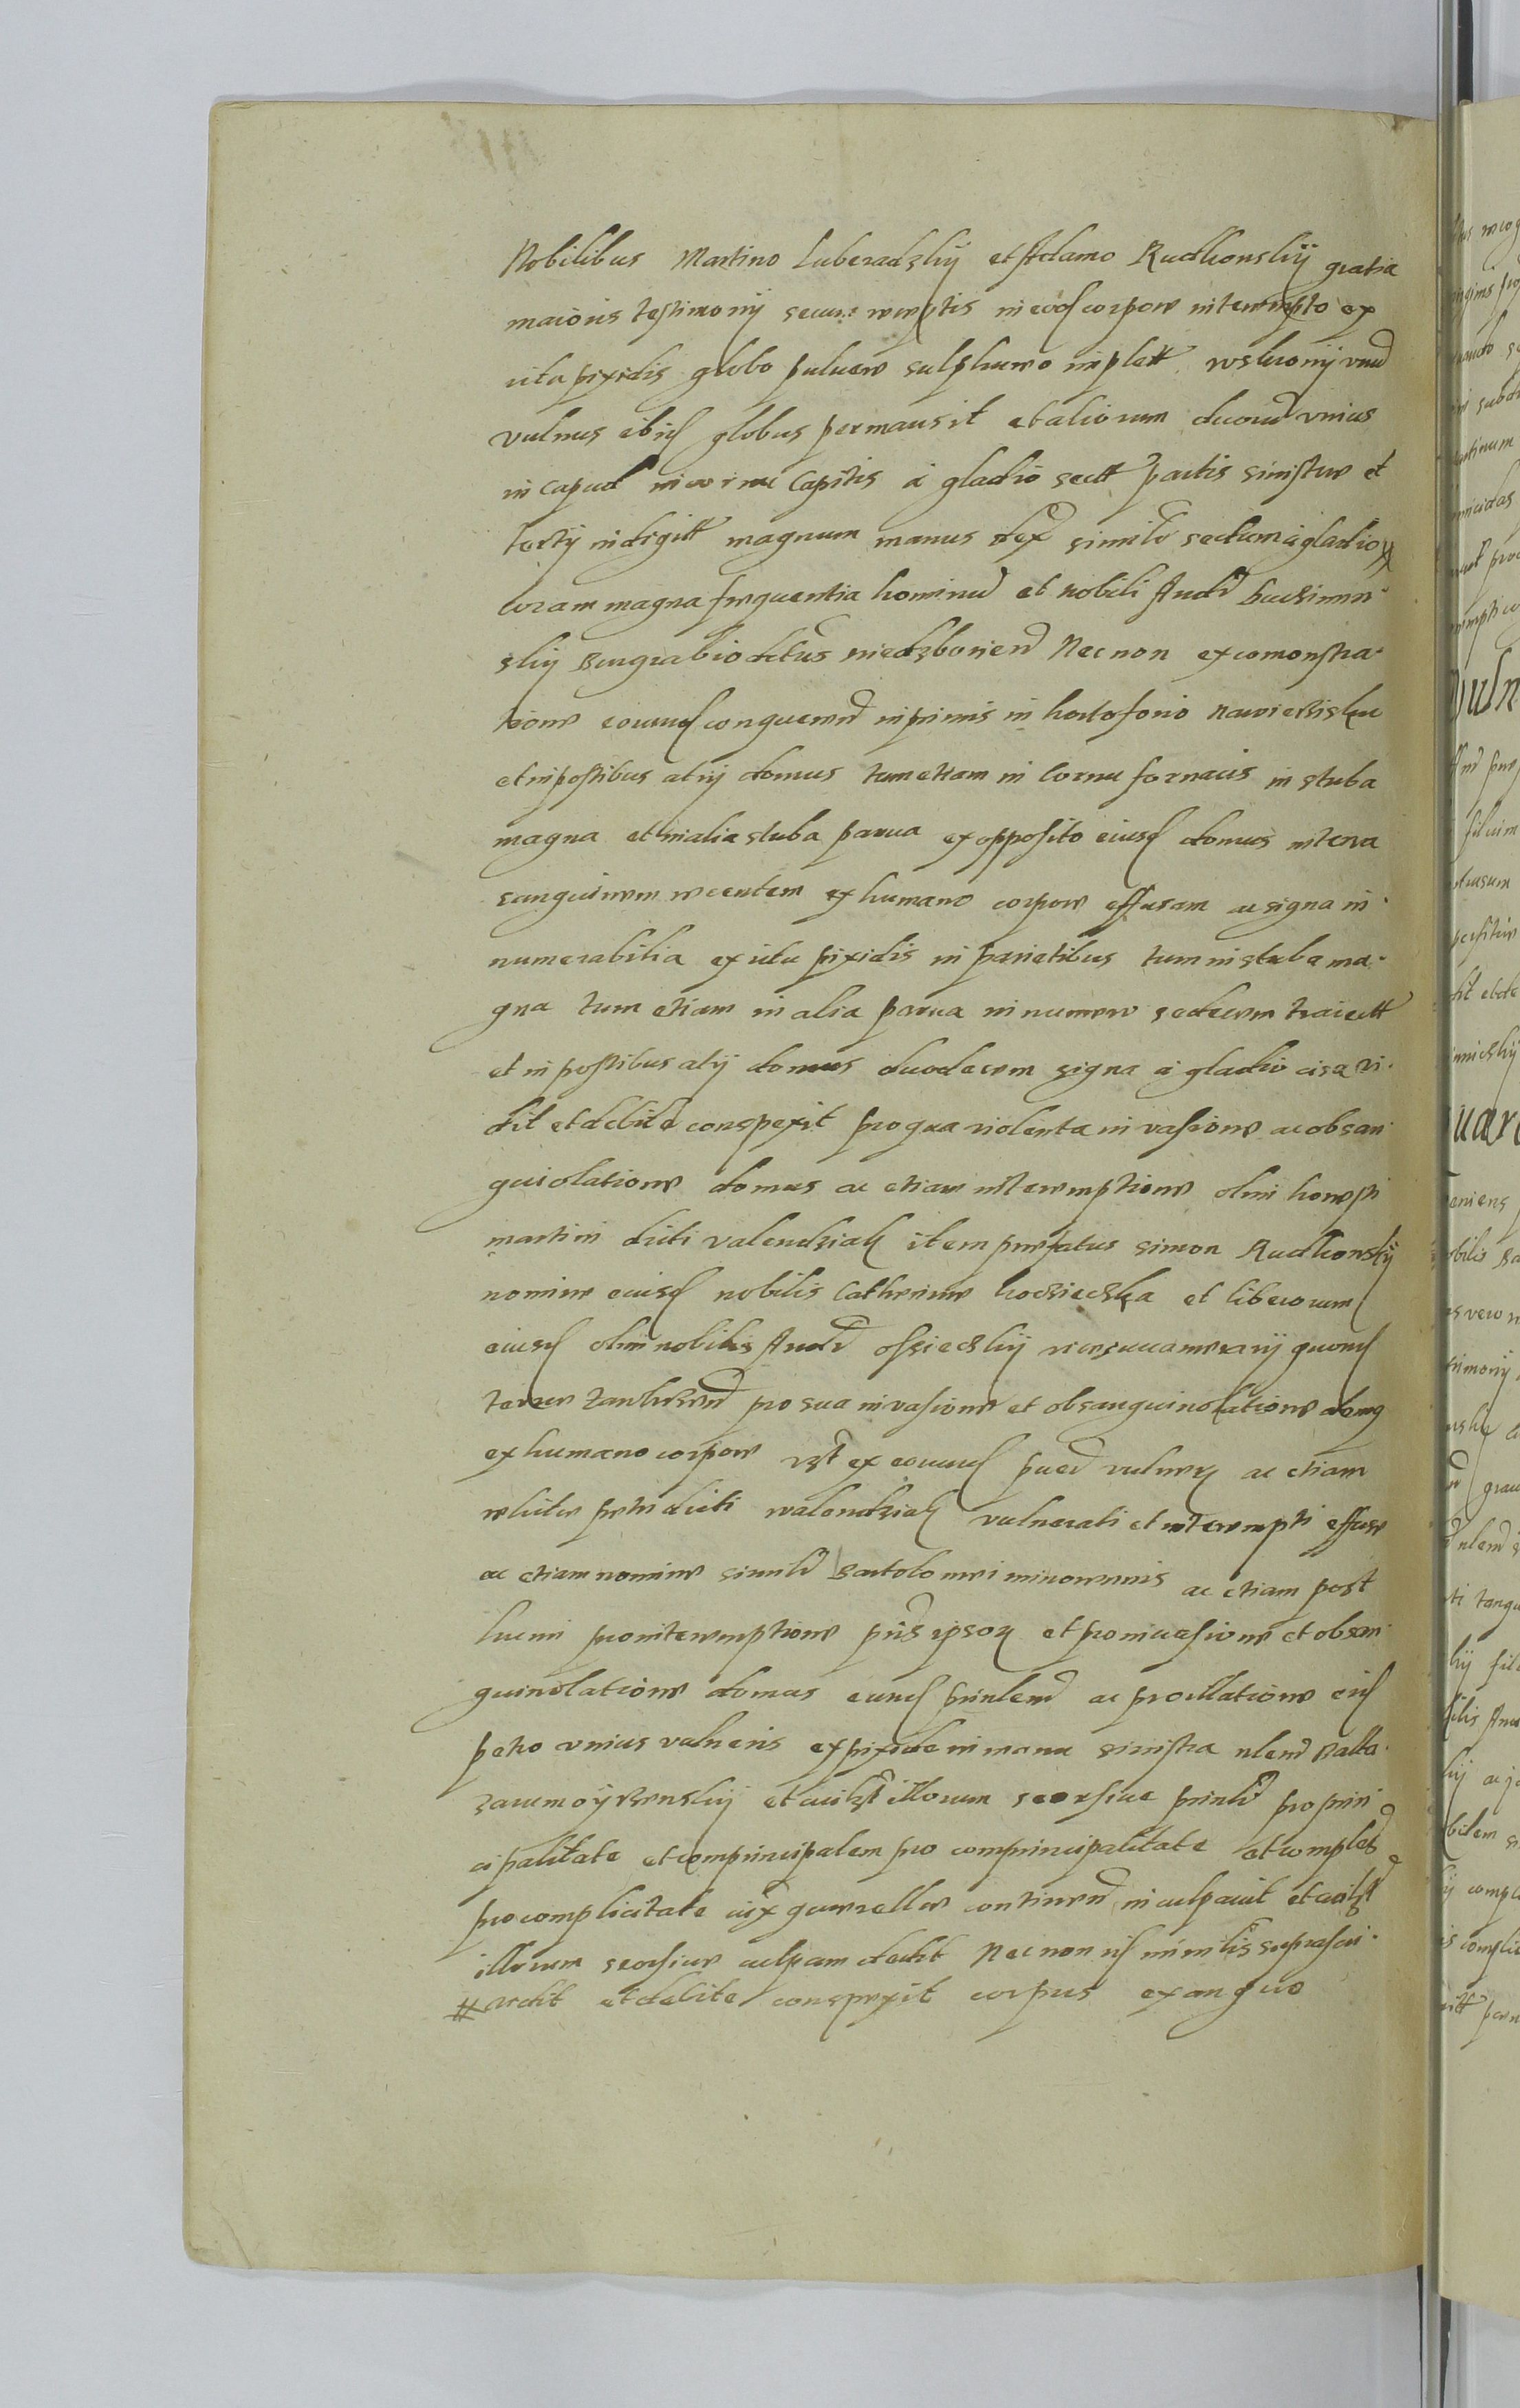 Nobilibus Martino Luberadzkij et Adamo Rudkonskij gratia
maioris testimonij secum receptis in eod corpore interempto ex
ictu pixidis globo puluere sulphureo implett wskronij vnu
vulnus ubi globus permansit et aliorum duoru vnius
in caput in cornu capitis a gladio sectt partis sinistre et
tertij in digitt magnum manus dex similr sectum a gladio #
coram magna frequentia hominu et nobili Andr
skij Burgrabio Niedzborien Nec non ex comonstra-
tione eorund conqueren inprimis in hostoforio
et in postibus atrij domus tum etiam in cornu fornacis in stuba
magna et in alia stuba parua ex opposito eiusd domus in terra
sanguinem recentem ex humano corpore effusam ac signa in-
numerabilia ex ictu pixidis in parietibus tum in stuba ma-
gna tum etiam in alia parua in numero sedecem traiectt
et in postibus atrij domus duodecem signa a gladio cisa vi-
dit et debite conspexit pro qua violenta inuasione ac obsan-
guiolatione domus ac etiam interemptione olim honesti
martini dicti valendziak item prefatus simon Rudkonskij
nomine eiusd nobilis Catherine kossieczka et liberorum
eiusd olim nobilis Andr ossieczkij vicesuccamerarij quond
terre pro sua inuasione et obsanguinolatione domq
ex humano corpore vzt ex eorund pred vulnerz ac etiam
relicte predicti walendziak vulnerati et interempti effuse
ac etiam nomine similr Bartolomei minorennis ac etiam post
humi pro interemptione pris ipsorz et pro inuasione et obsan-
guinolatione domus eund prinlem ac pro illatione eid
petro vnius vulneris ex pixide in manu sinistra nlem Balta-
zarum oijrzenskij et quilzt illorum seorsiue prinlr pro prin-
cipalitate et comprincipalem pro comprincipalitate et complem
pro complicitate iux querellas continen inculpauit et cuilzt
illorum seorsiue culpam dedit Nec non id minlis suprascri-
# vidit et debite conspexit corpus exangue